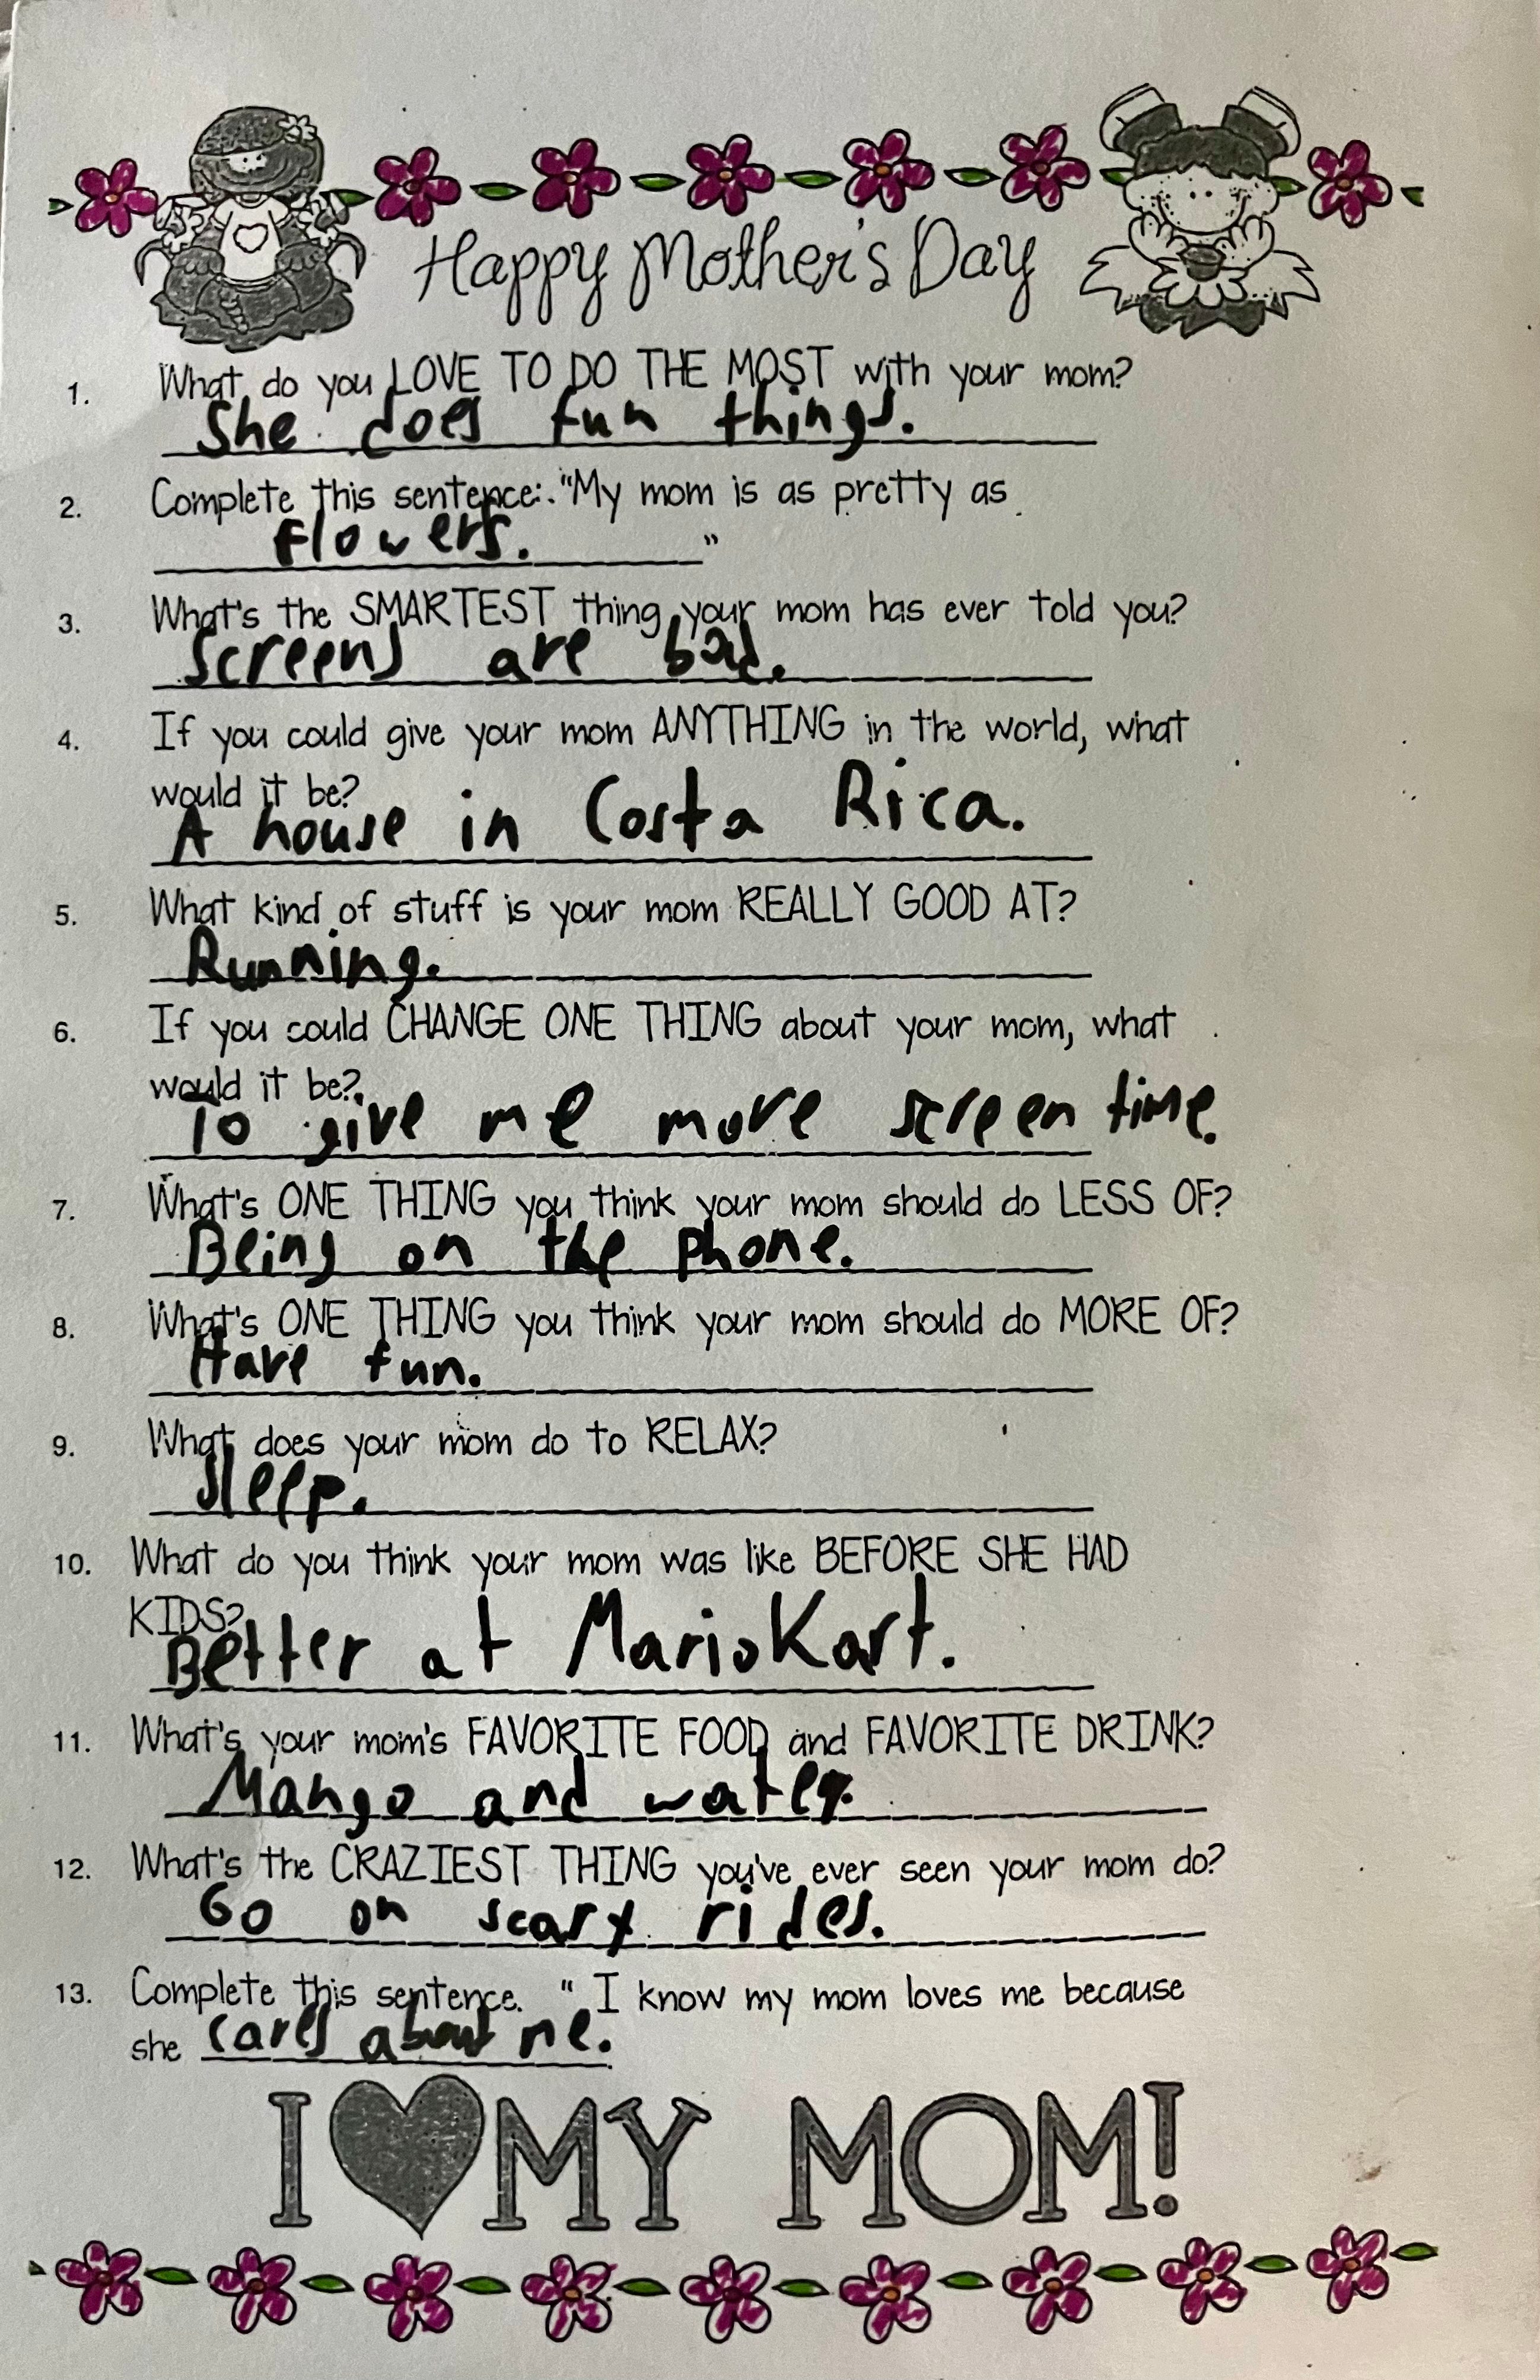 Happy Mother's Day
1. What do you LOVE TO DO THE MOST with your mom?
She does fun things.
2. Complete this sentence: "My mom is as pretty as
flowers. "
3. What's the SMARTEST thing your mom has ever told you?
Screens are bad.
4. If you could give your mom ANYTHING in the world, what
would it be?
A house in Costa Rica.
5. What kind of stuff is your mom REALLY GOOD AT?
Running.
6. If you could CHANGE ONE THING about your mom, what
would it be?
To give me more screen time.
7. What's ONE THING you think your mom should do LESS OF?
Being on the phone.
8. What's ONE THING you think your mom should do MORE OF?
Have fun.
9. What does your mom do to RELAX?
Sleep.
10. What do you think your mom was like BEFORE SHE HAD
KIDS?
Better at MarioKart.
11. What's your mom's FAVORITE FOOD and FAVORITE DRINK?
Mango and water.
12. What's the CRAZIEST THING you've ever seen your mom do?
Go on scary rides.
13. Complete this sentence. " I know my mom loves me because
she cares about me.
I ♥ MY MOM!